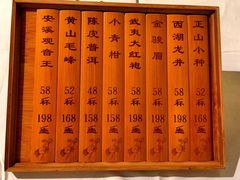 安溪观音王
58
杯
198
壶
黄山毛峰
52
杯
168
壶
陈皮普洱
48
杯
158
壶
小青柑
58
杯
158
壶
武夷大红袍
58
杯
198
壶
金骏眉
58
杯
198
壶
西湖龙井
58
杯
198
壶
正山小种
52
杯
168
壶